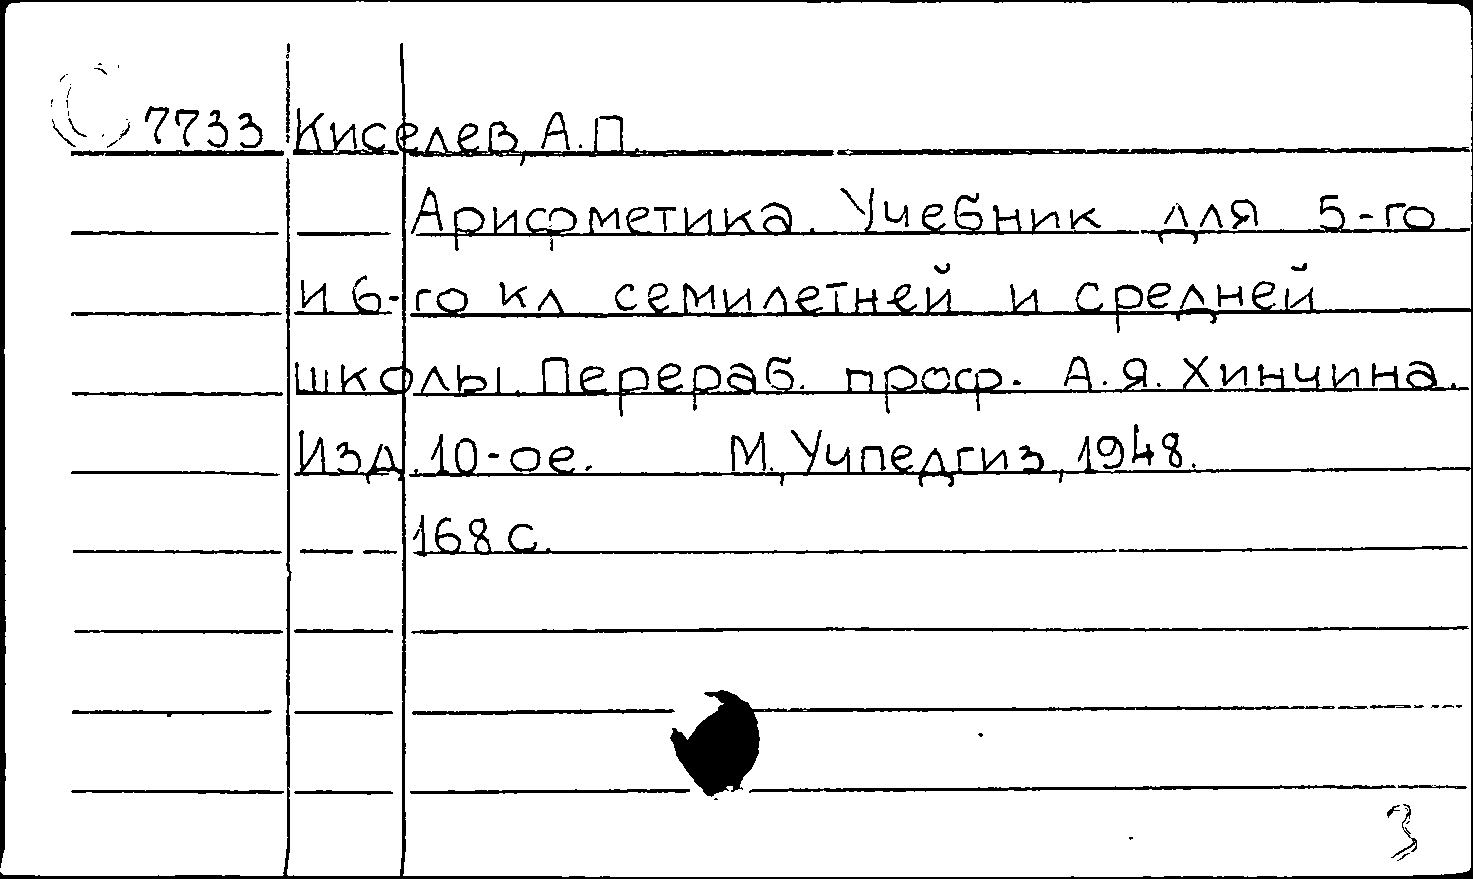 С 7733 Киселев, А.П.
Арифметика. Учебник для 5-го
и 6-го кл семилетней и средней
школы. Перераб. проф. А.Я. Хинчина.
Изд. 10-ое. М., Учпедгиз, 1948.
168 с.
3